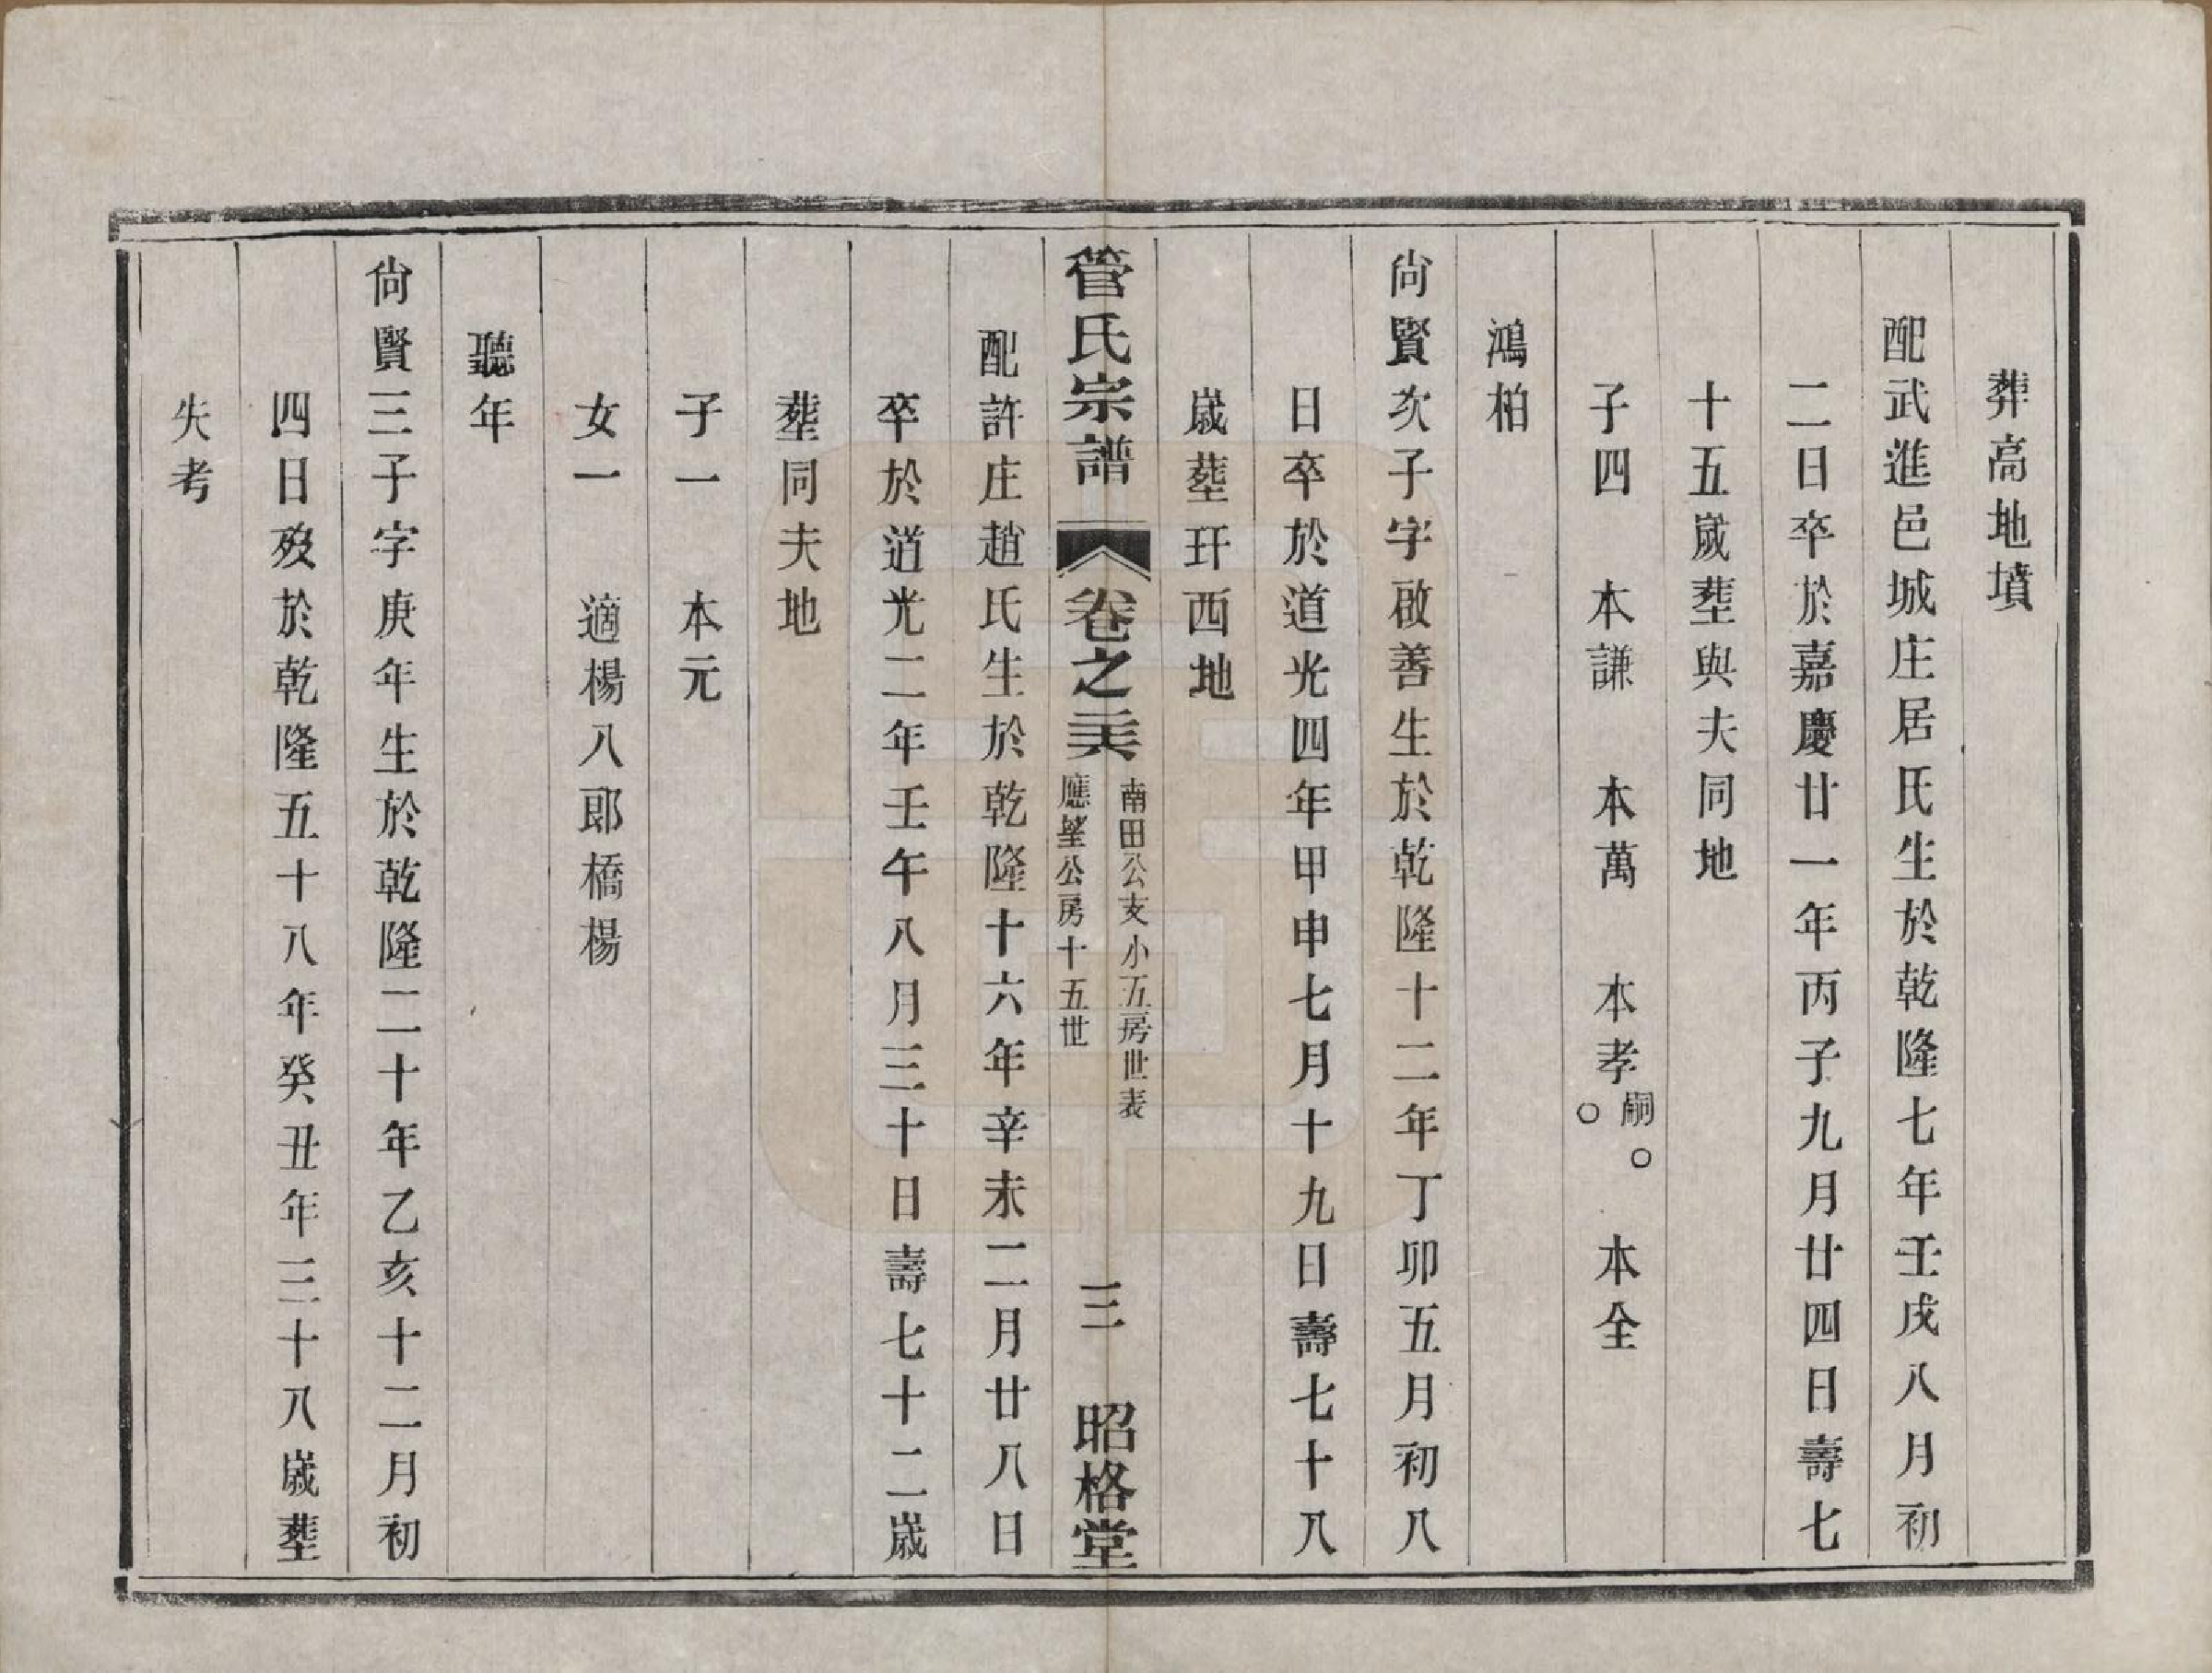 葬高地墳
配武進邑城庄居氏生於乾隆七年壬戌八月初
二日卒於嘉慶廿一年丙子九月廿四日壽七
十五歲塟與夫同地
子四　本謙　本萬　本孝嗣○○　本全
鴻柏
尙賢次子字啟善生於乾隆十二年丁卯五月初八
日卒於道光四年甲申七月十九日壽七十八
歲塟玕西地
管氏宗譜　卷之二六　南田公支小五房世表
應堃公房十五世　三　昭格堂
配許庄趙氏生於乾隆十六年辛未二月廿八日
卒於道光二年壬午八月三十日壽七十二歲
塟同夫地
子一　本元
女一　適楊八郎橋楊
聽年
尙賢三子字庚年生於乾隆二十年乙亥十二月初
四日歿於乾隆五十八年癸丑年三十八歲塟
失考